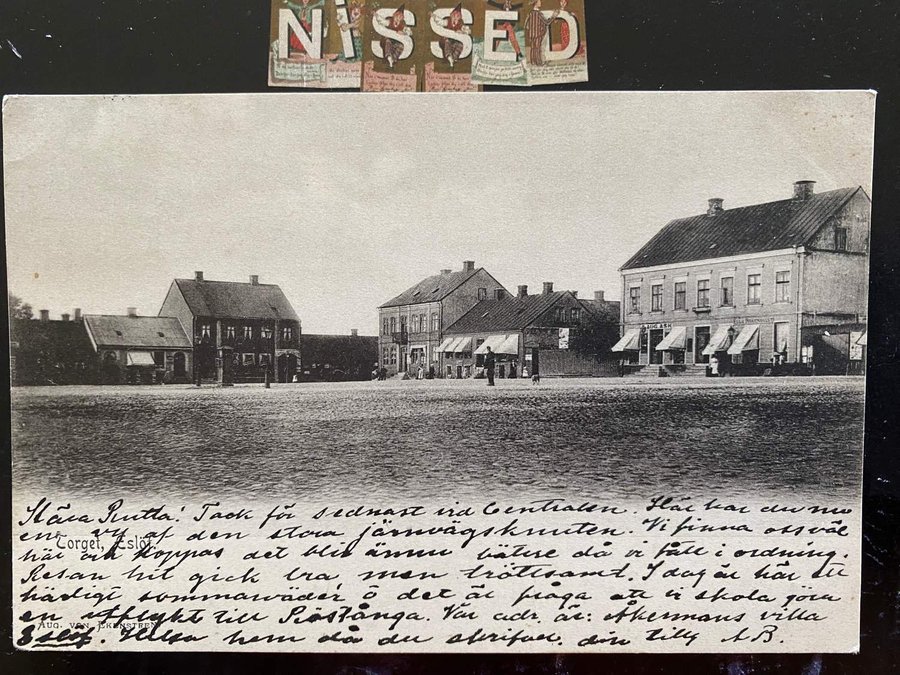 NiSSED
Kära Rutta! Tack för sednast vid Centralen. Här har du nu
en vy af den stora järnvägsknuten. Vi finna oss väl
Torget, Eslöf.
här och hoppas det blir ännu bättre då vi fått i ordning.
Resan hit gick bra, men tröttsamt. I dag är här ett
härligt sommarväder o det är fråga att vi skola göra
en utflykt till Röstånga. Vår adr. är: Åkermans villa
AUG. VON EKENSTEEN
Eslöf. Hälsa hem då du skrifver. din tillg A.B.